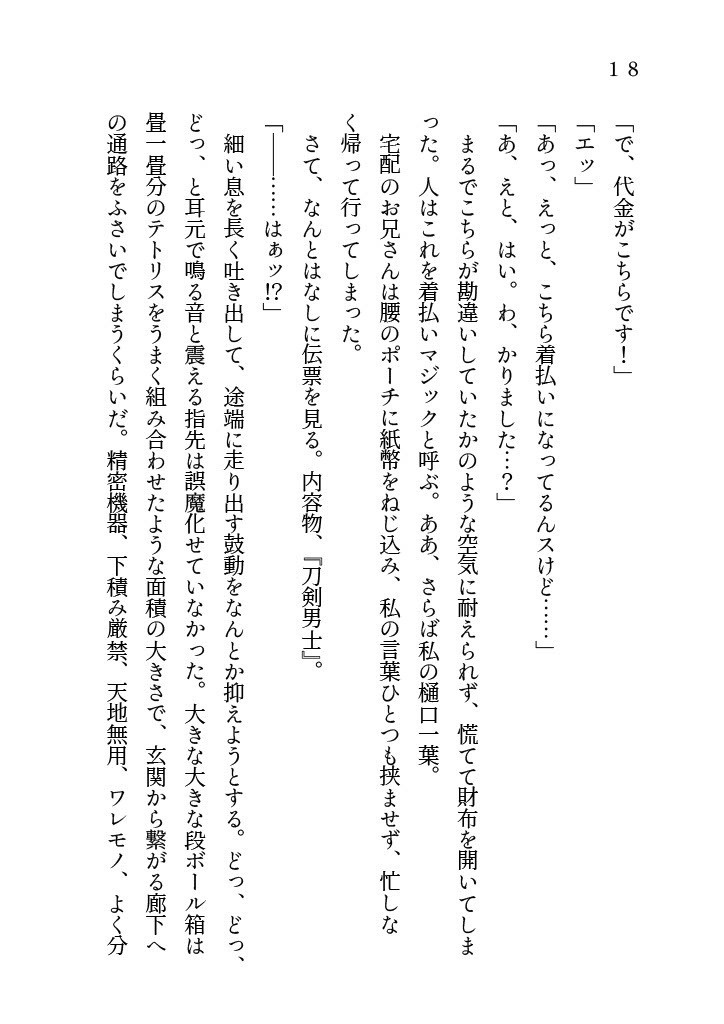 18
「で、代金がこちらです！」
「エッ」
「あっ、えっと、こちら着払いになってるんスけど……」
「あ、えと、はい。わ、かりました…？」
　まるでこちらが勘違いしていたかのような空気に耐えられず、慌てて財布を開いてしま
った。人はこれを着払いマジックと呼ぶ。ああ、さらば私の樋口一葉。
　宅配のお兄さんは腰のポーチに紙幣をねじ込み、私の言葉ひとつも挟ませず、忙しな
く帰って行ってしまった。
　さて、なんとはなしに伝票を見る。内容物、『刀剣男士』。
「――……はぁッ!?」
　細い息を長く吐き出して、途端に走り出す鼓動をなんとか抑えようとする。どっ、どっ、
どっ、と耳元で鳴る音と震える指先は誤魔化せていなかった。大きな大きな段ボール箱は
畳一畳分のテトリスをうまく組み合わせたような面積の大きさで、玄関から繋がる廊下へ
の通路をふさいでしまうくらいだ。精密機器、下積み厳禁、天地無用、ワレモノ、よく分